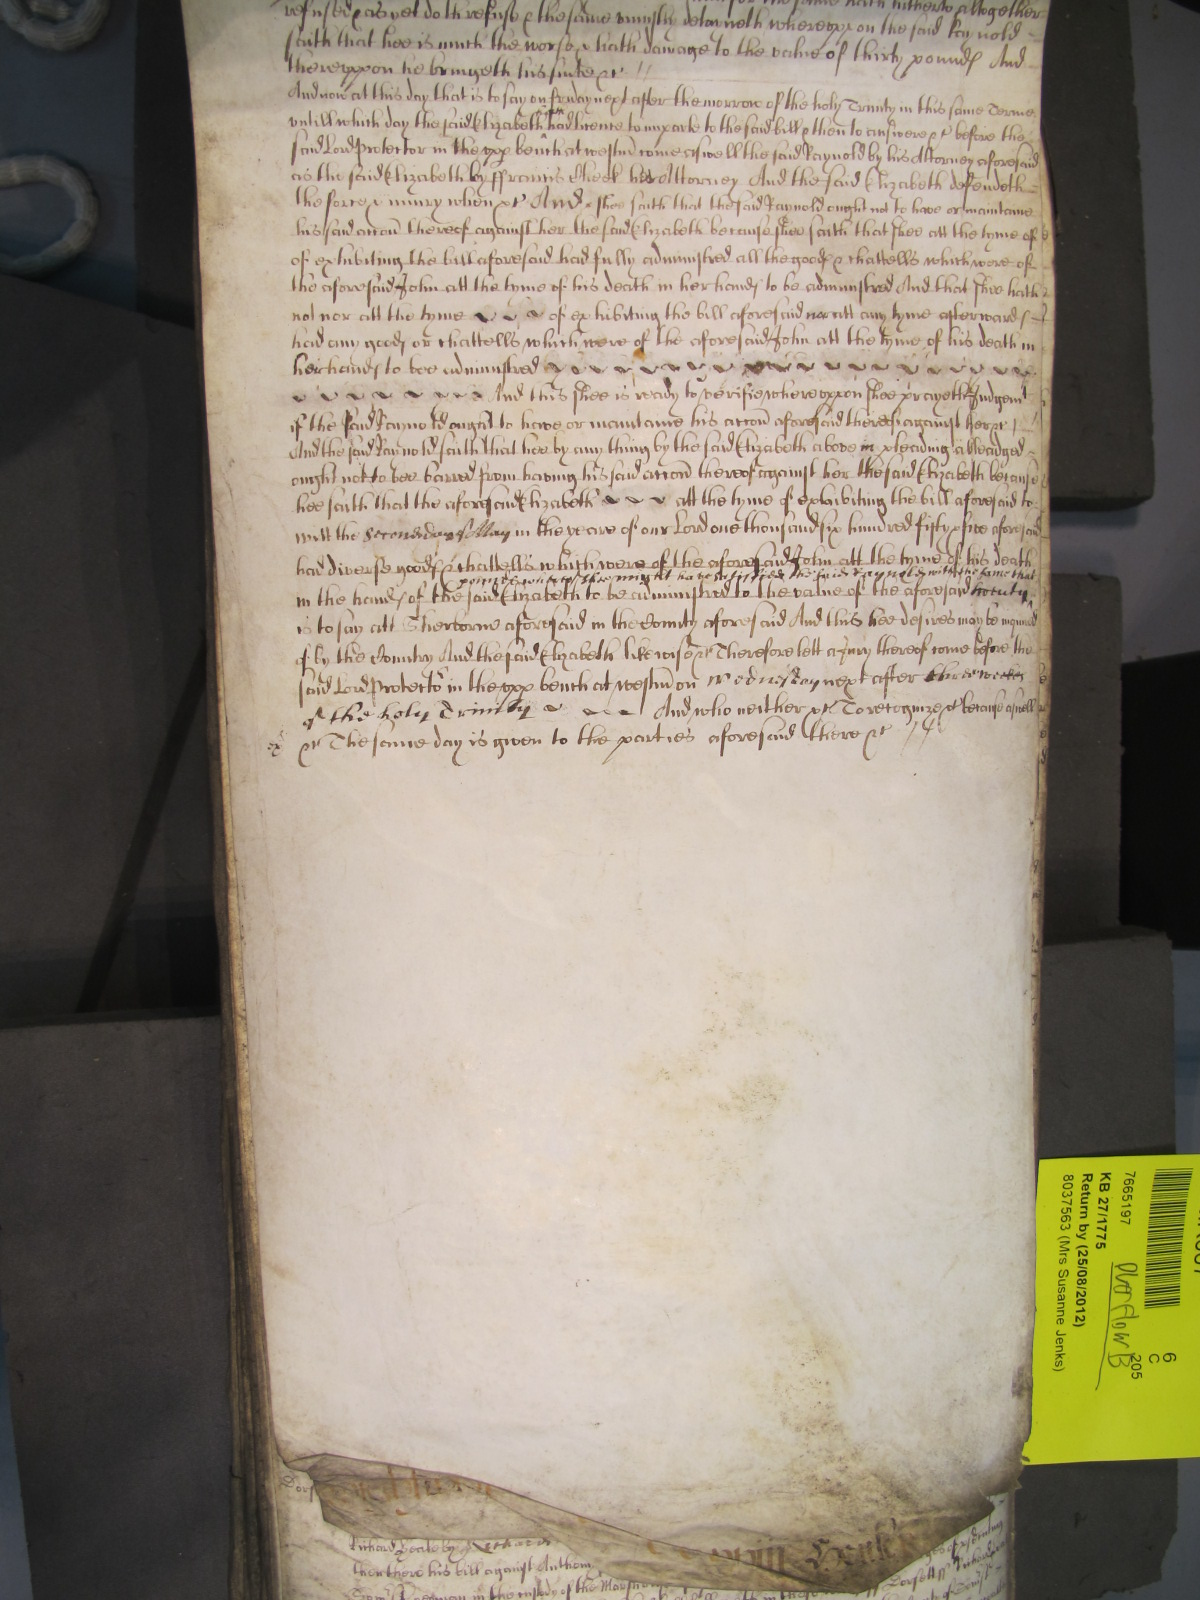 for the same hath hitherto altogether
refused & as yet doth refuse & the same unjustly detayneth whereuppon the said Raynold
saith that hee is much the worse & hath damage to the value of thirty pounds And
thereuppon he bringeth his suite &c //
And now at this day that is to say on fryday next after the morrow of the holy Trinity in this same Terme
untill which day the said Elizabeth had licence to imparle to the said bill & then to answere &c before the
said Lord Protector in the upper bench at westm come aswell the said Raynold by his Attorney aforesaid
as the said Elizabeth by ffrancis Cheek her Attorney And the said Elizabeth defendeth
the force & iniury when &c And shee saith that the said Raynold ought not to have or maintaine
his said action thereof against her the said Elizabeth because shee saith that shee att the tyme of
of exhibiting the bill aforesaid had fully administred all the goods & chattells which were of
the aforesaid John att the tyme of his death in her hands to be administred And that shee hath
not nor att the tyme of exhibiting the bill aforesaid nor att any tyme afterwards
had any goods or chattells which were of the aforesaid John att the tyme of his death in
her hands to bee administred
And this shee is ready to verifie whereuppon shee prayeth Judgemt
if the said Raynold ought to have or maintaine his action aforesaid thereof against her &c /
And the said Raynold saith that hee by any thing by the said Elizabeth above in pleading alleadged
ought not to bee barred from having his said action thereof against her the said Elizabeth because
hee saith that the aforesaid Elizabeth att the tyme of exhibiting the bill aforesaid to
witt the second day of May in the yeare of our Lord one thousand six hundred fifty & five aforesaid
had diverse goods & chattells which were of the aforesaid John att the tyme of his death
pounds whereof shee might have satisfied the said Raynold with the same that
in the hands of the said Elizabeth to be administred to the value of the aforesaid twenty
is to say att Sherborne aforesaid in the County aforesaid And this hee desires may be inquired
of by the Country And the said Elizabeth likewise &c Therefore lett a Jury thereof come before the
said Lord Protector in the upper bench at westm on wednesday next after three weekes
of the holy Trinity And who neither &c To recognize &c because aswell
&c The same day is given to the parties aforesaid there &c //
Dors
Richard
then there his bill against Anthony
in the custody of the Marshall
7665197
KB 27/1775
Return by (25/08/2012)
8037563 (Mrs Susanne Jenks)
Overflow B
6
C
205